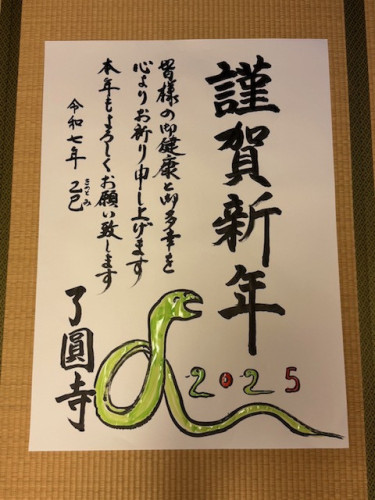 謹賀新年
皆様の御健康と御多幸を
心よりお祈り申し上げます
本年もよろしくお願い致します
令和七年 乙巳
きのとみ
了圓寺
2025